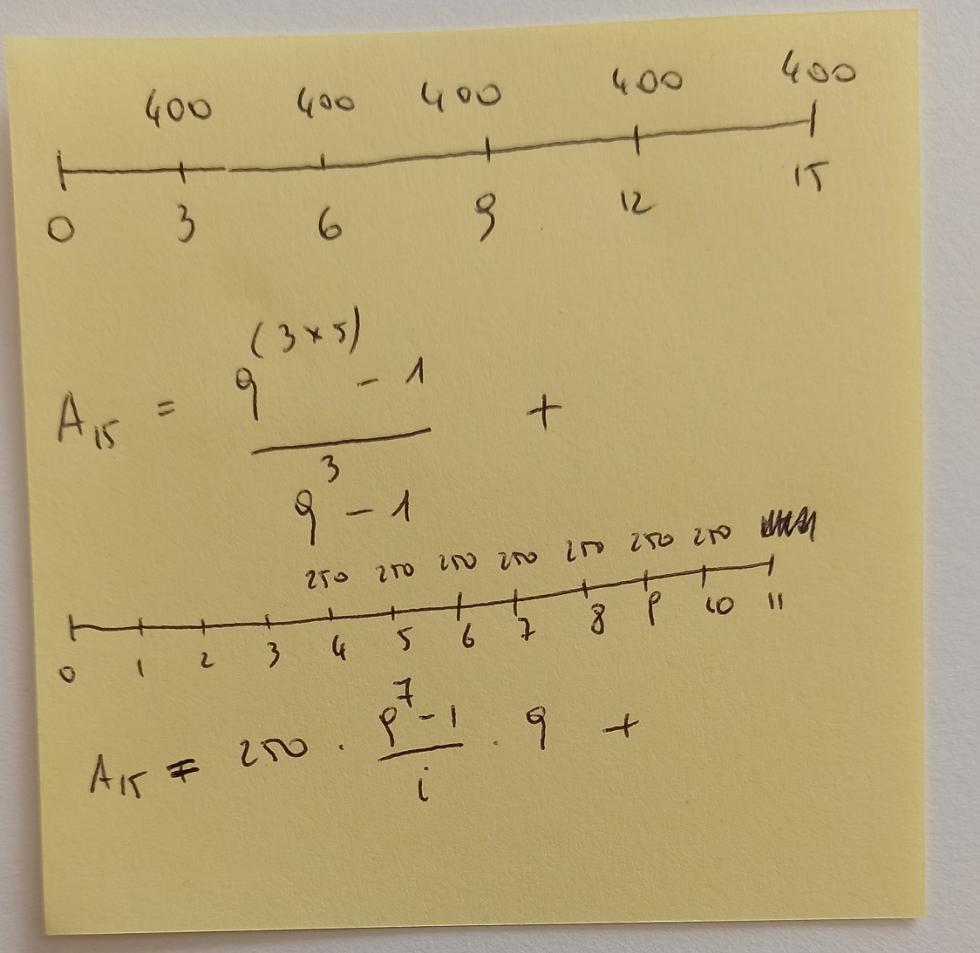 400 400 400 400 400
0 3 6 9 12 15
(3×5)
A₁₅ = q - 1 +
3
q - 1
250 250 250 250 250 250 250
0 1 2 3 4 5 6 7 8 9 10 11
7
A₁₅ = 250 · q - 1 · q +
i